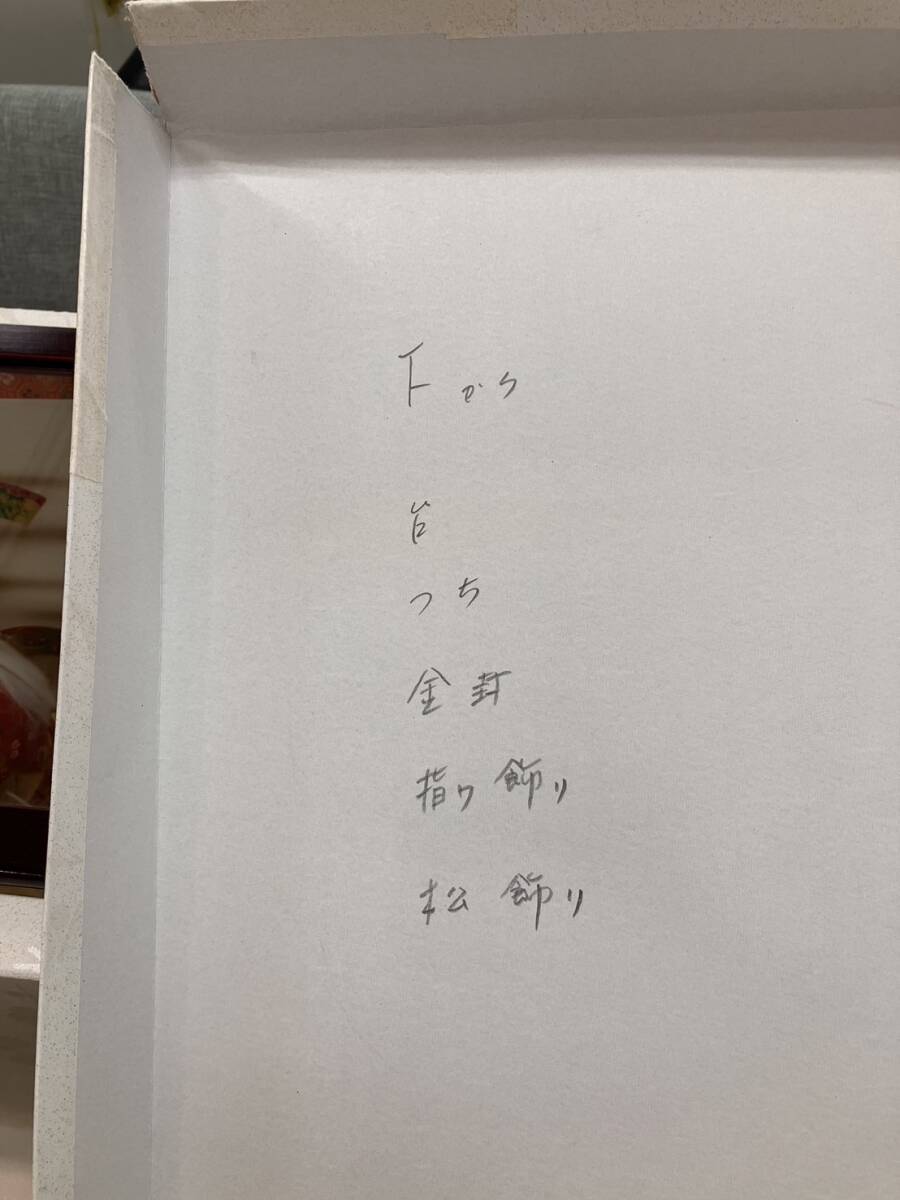 下から
台
つち
金封
指ワ飾り
松飾り